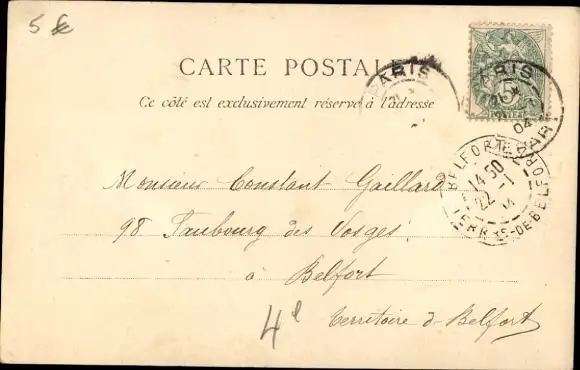 5 €
CARTE POSTALE
Ce côté est exclusivement réservé à l'adresse
PARIS
PARIS
04
5
POSTES
BELFORT
14 50
22 - 1
04
TERRRE-DE-BELFORT
Monsieur Constant Gaillard
98 Faubourg des Vosges
à Belfort
4e
Territoire d-Belfort